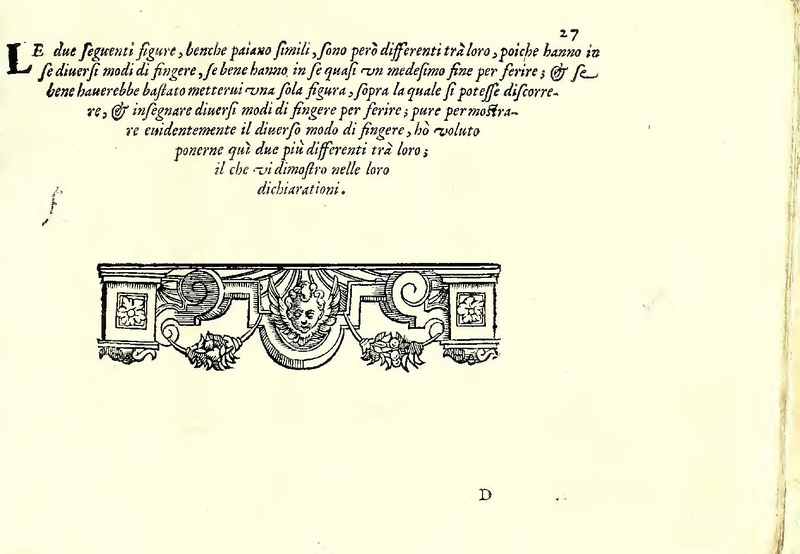 27
LE due ſeguenti figure, benche paiano ſimili, ſono però differenti trà loro, poiche hanno in
ſe diuerſi modi di fingere, ſe bene hanno in ſe quaſi vn medeſimo fine per ferire; & ſe
bene hauerebbe baſtato metterui vna ſola figura, ſopra la quale ſi poteſſe diſcorre-
re, & inſegnare diuerſi modi di fingere per ferire; pure per moſtra-
re euidentemente il diuerſo modo di fingere, hò voluto
ponerne quì due più differenti trà loro;
il che vi dimoſtro nelle loro
dichiarationi.
D